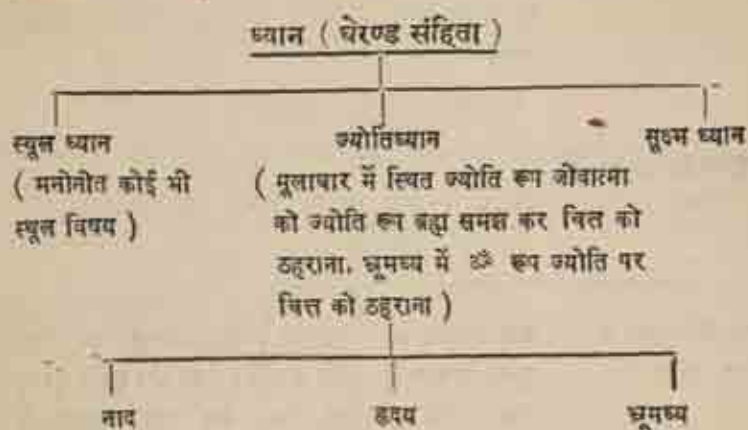 ध्यान ( घेरण्ड संहिता )
स्थूल ध्यान
( मनोनीत कोई भी
स्थूल विषय )
ज्योतिध्यान
( मूलाधार में स्थित ज्योति रूप जीवात्मा
को ज्योति रूप ब्रह्म समझ कर चित्त को
ठहराना. भ्रूमध्य में ॐ रूप ज्योति पर
चित्त को ठहराना )
सूक्ष्म ध्यान
नाद
हृदय
भ्रूमध्य